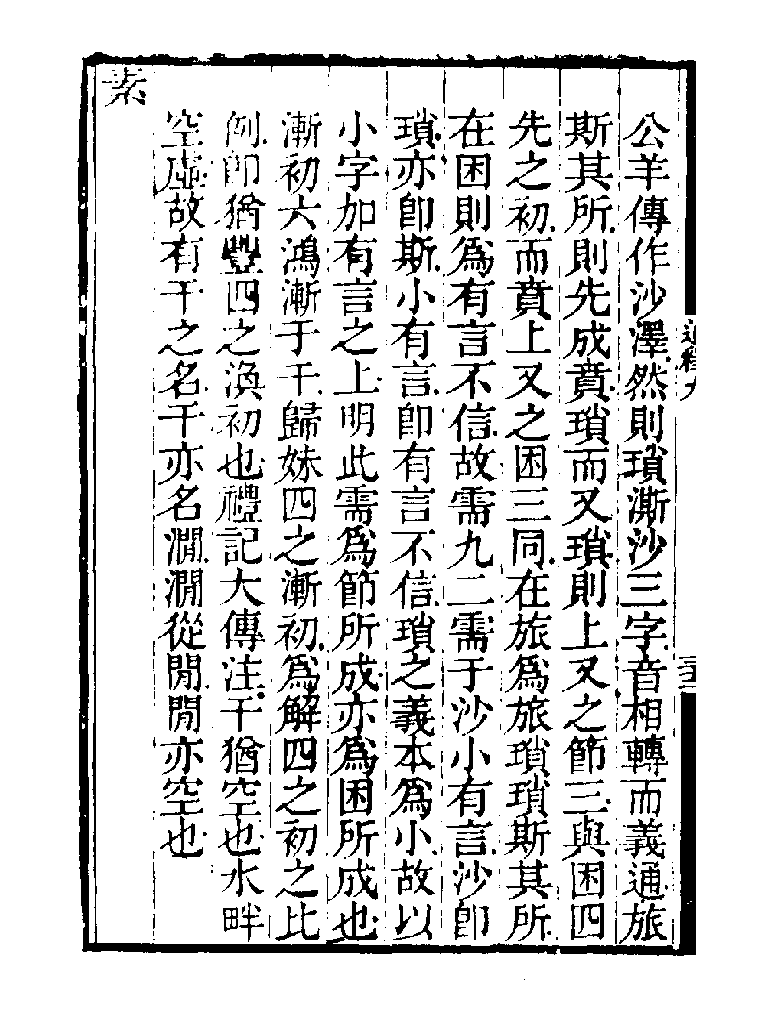 公羊傳作沙澤然則瑣澌沙三字音相轉而義通旅
斯其所則先成賁瑣而又瑣則上又之節三與困四
先之初而賁上又之困三同在旅爲旅瑣瑣斯其所
在困則爲有言不信故需九二需于沙小有言沙卽
瑣亦卽斯小有言卽有言不信瑣之義本爲小故以
小字加有言之上明此需爲節所成亦爲困所成也
漸初六鴻漸于干歸妹四之漸初爲解四之初之比
例卽猶豐四之渙初也禮記大傳注干猶空也水畔
空虛故有干之名干亦名澗澗從閒閒亦空也
素